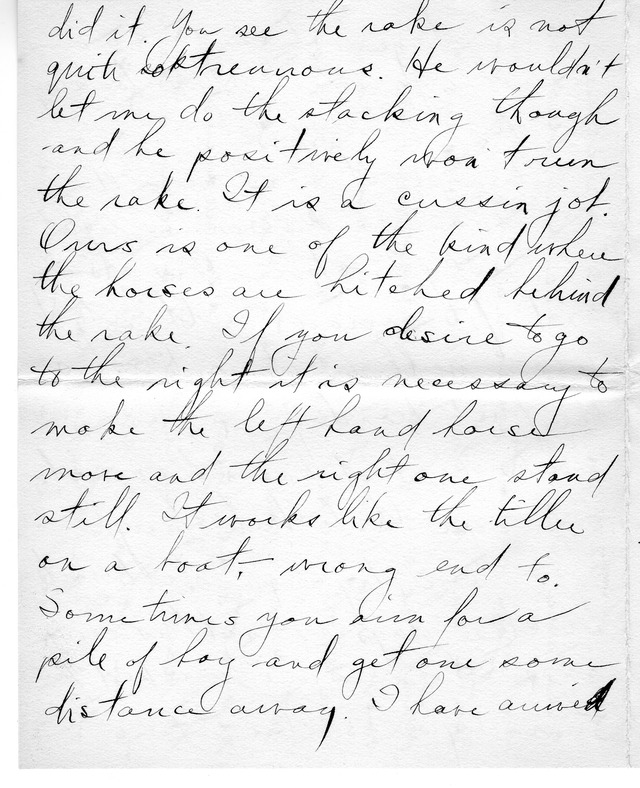 did it. You see the rake is not
quite so strenuous. He wouldn't
let me do the stacking though
and he positively won't run
the rake. It is a cussin job.
Ours is one of the kind where
the horses are hitched behind
the rake. If you desire to go
to the right it is necessary to
make the left hand horse
move and the right one stand
still. It works like the tiller
on a boat, wrong end to.
Sometimes you aim for a
pile of hay and get one some
distance away. I have arrived